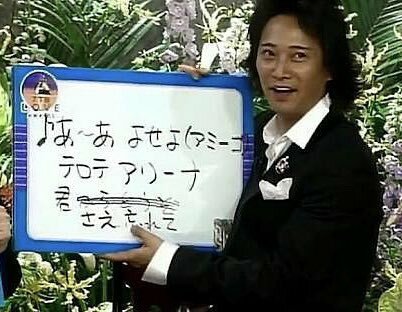 LOVE
♪あ〜あ よせよ(アミーゴ
テロテ アリーナ
君
さえ忘れて